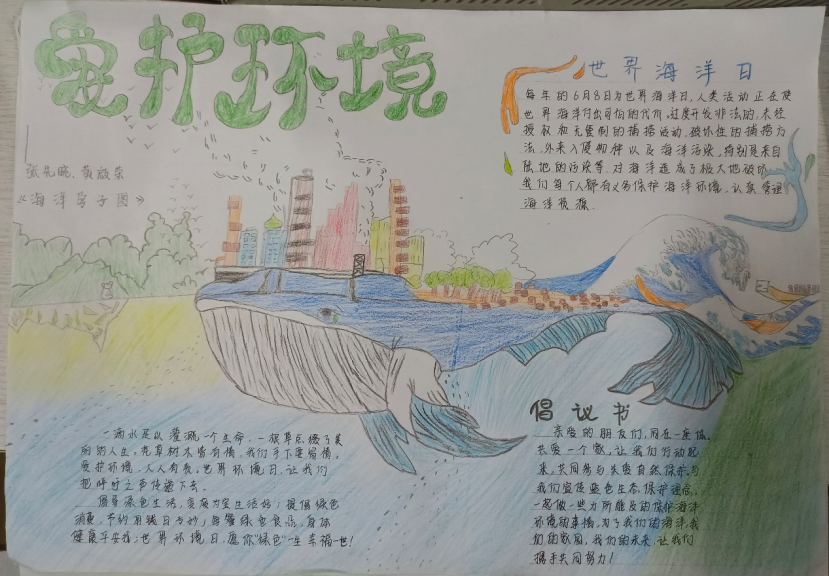 爱护环境
世界海洋日
每年的6月8日为世界海洋日,人类活动正在使
世界海洋付出可怕的代价,过度开发非法的,未经
授权和无管制的捕捞活动,破坏性的捕捞方
法,外来入侵物种以及海洋污染,特别是来自
陆地的污染等,对海洋造成了极大地破坏
我们每个人都有义务保护海洋环境,认真管理
海洋资源
《海洋分子图》
一滴水足以灌溉一个生命,一根草点缀了美
丽的人生,花草树木皆有情,我们手下要留情,
爱护环境,人人有责,世界环境日,让我们
把呼吁之声传递下去。
倡导绿色生活,变废为宝生活好;提倡绿色
消费,节约用钱日日妙;
健康平安;世界环境日,愿你"绿色"一生幸福一世!
倡议书
亲爱的朋友们,同在一座城,
共爱一个家,让我们行动起
来,共同参与关爱自然保护,与
我们宣传蓝色生态,保护理念,
一起做一些力所能及的保护海洋
环境的事情,为了我们的海洋,我
们的家园,我们的未来,让我们
携手共同努力!